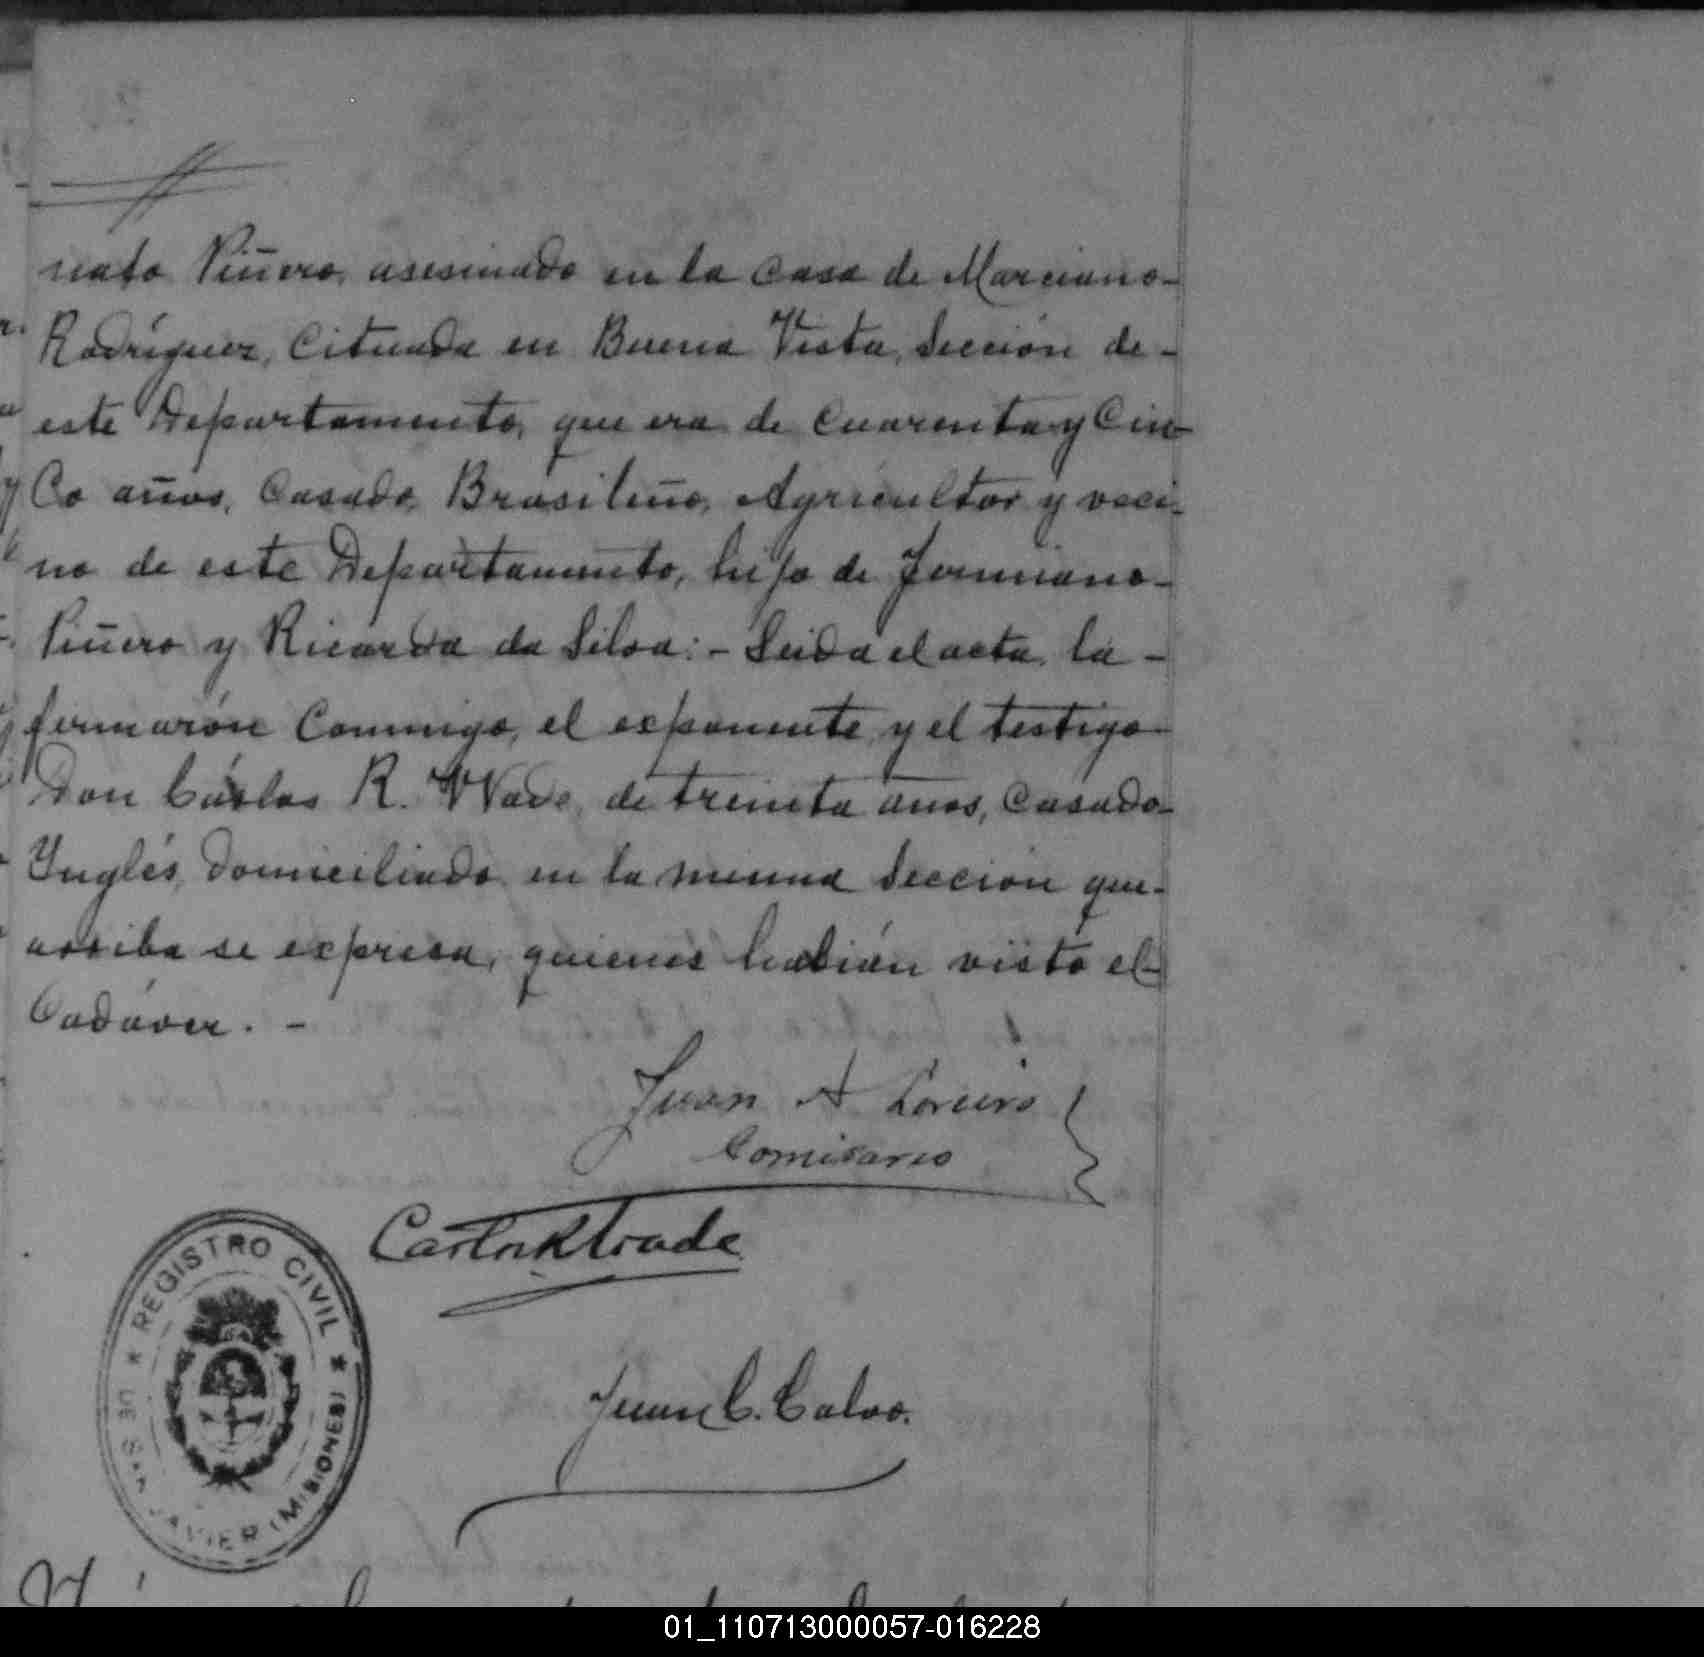 nato Piñero, asesinado en la casa de Marciano-
Rodríguez, Cituada en Buena Vista, Sección de-
este Departamento, que era de Cuarenta y Cin-
Co años, Casado, Brasileño, Agricultor y veci-
no de este Departamento, hijo de Firmiano-
Piñero y Ricarda da Silva:- Leida el acta, la-
firmarón Conmigo, el exponente, y el testigo
Don Cárlos R. Wade, de treinta años, Casado-
Ynglés, domiciliado en la misma Sección que-
arriba se expresa, quienes habián visto el-
Cadáver. -
Juan A
Comisario
Carlos R Wade
Juan C. Calvo.
* REGISTRO CIVIL *
DE SAN JAVIER (MISIONES)
01_110713000057-016228